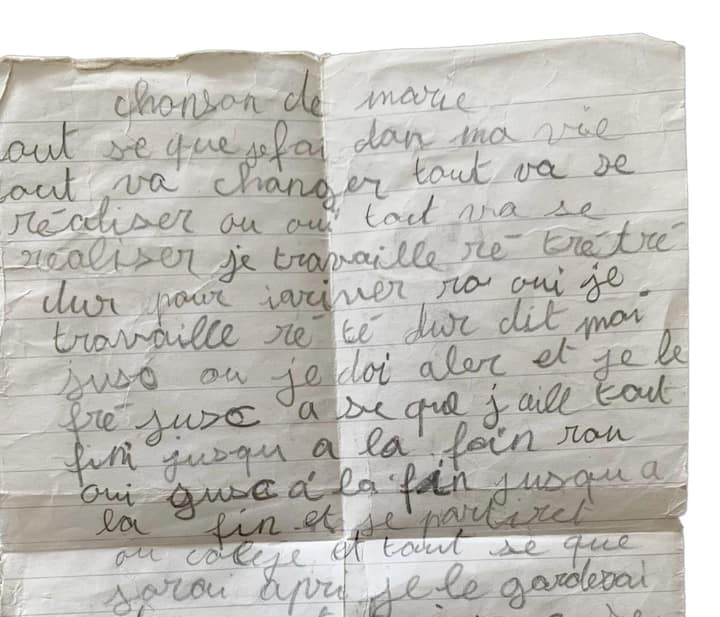 chanson de marie
out se que je fai dan ma vie
tout va changer tout va se
réaliser ou oui tout va se
réaliser je travaille ré tré tré
dur pour iariver ra oui je
travaille ré té dur dit moi
jusc ou je doi aler et je le
fré jusc a se que j aille tout
fini jusqu a la foin rau
oui gusc á la fin jusqu a
la fin et je partiret
au coleje et tout se que
jorai apri je le garderai